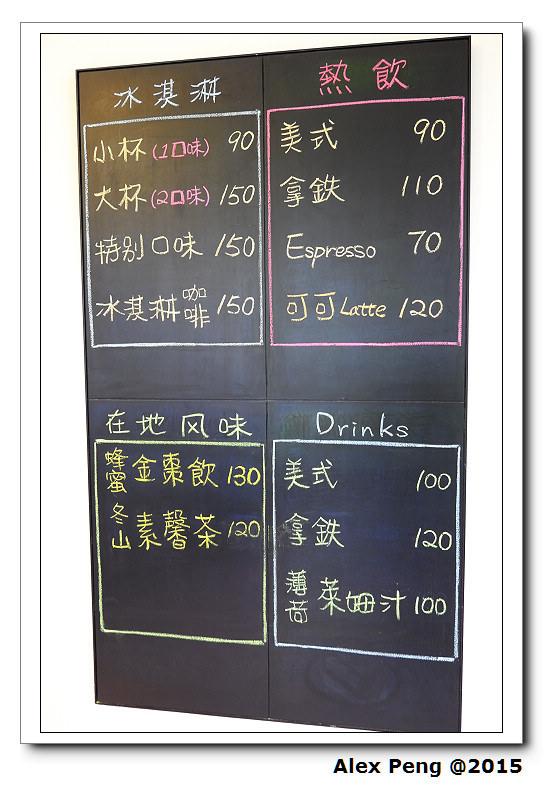 冰淇淋
小杯(1口味) 90
大杯(2口味) 150
特別口味 150
冰淇淋咖啡 150
熱飲
美式 90
拿鉄 110
Espresso 70
可可Latte 120
在地风味
蜂蜜金棗飲 130
冬山素馨茶 120
Drinks
美式 100
拿鉄 120
薄荷萊姆汁 100
Alex Peng @2015